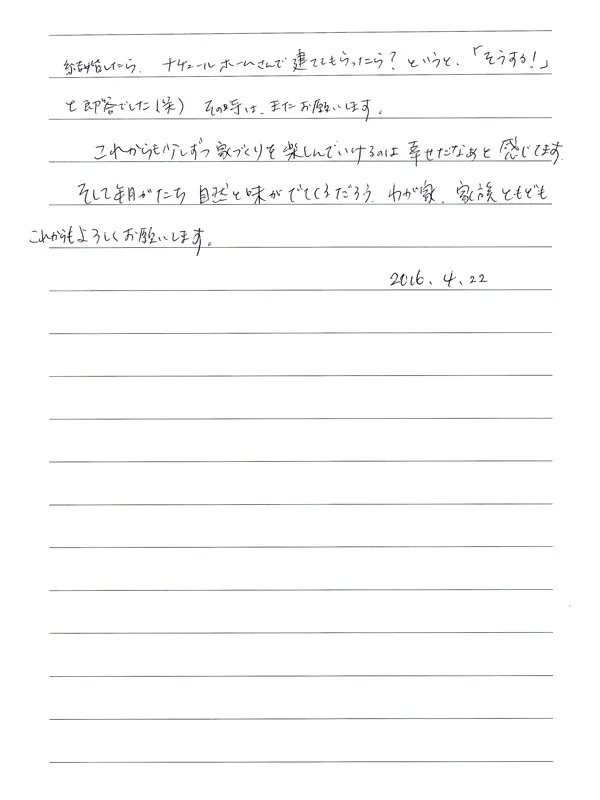 結婚したら、ナチュールホームさんで建てもらったら？というと、「そうする！」
と即答でした(笑) その時は、またお願いします。
これからも少しずつ家づくりを楽しんでいけるのは幸せだなあと感じてます。
そして年月がたち自然と味がでてくるだろう、わが家、家族ともども
これからもよろしくお願いします。
2016、4、22